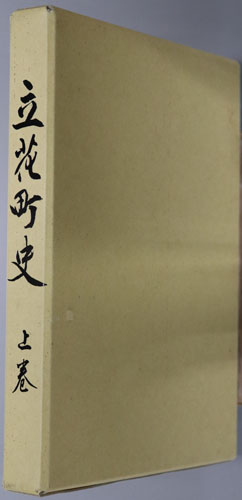 立花町史
上巻